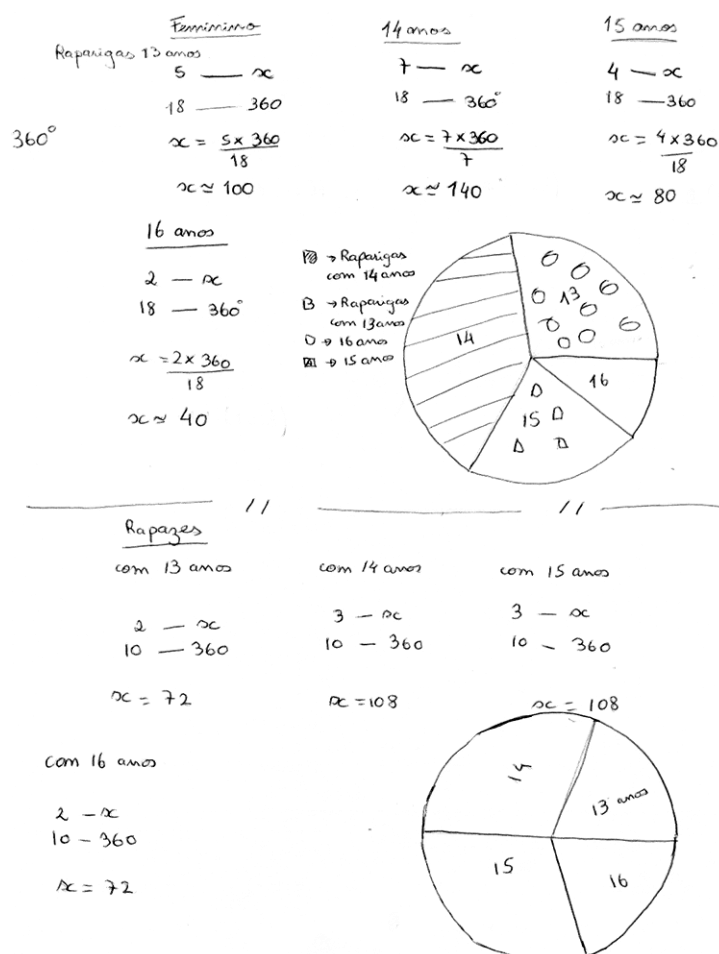 Feminino
Raparigas 13 anos
5 — x
18 — 360
360°
x = 5 x 360
18
x ≃ 100
14 anos
7 — x
18 — 360°
x = 7 x 360
7
x ≃ 140
15 anos
4 — x
18 — 360
x = 4 x 360
18
x ≃ 80
16 anos
2 — x
18 — 360°
x = 2 x 360
18
x ≃ 40
→ Raparigas
com 14 anos
→ Raparigas
com 13 anos
→ 16 anos
→ 15 anos
14
13
16
15
Rapazes
com 13 anos
2 — x
10 — 360
x = 72
com 14 anos
3 — x
10 — 360
x = 108
com 15 anos
3 — x
10 — 360
x = 108
com 16 anos
2 — x
10 — 360
x = 72
14
13 anos
15
16